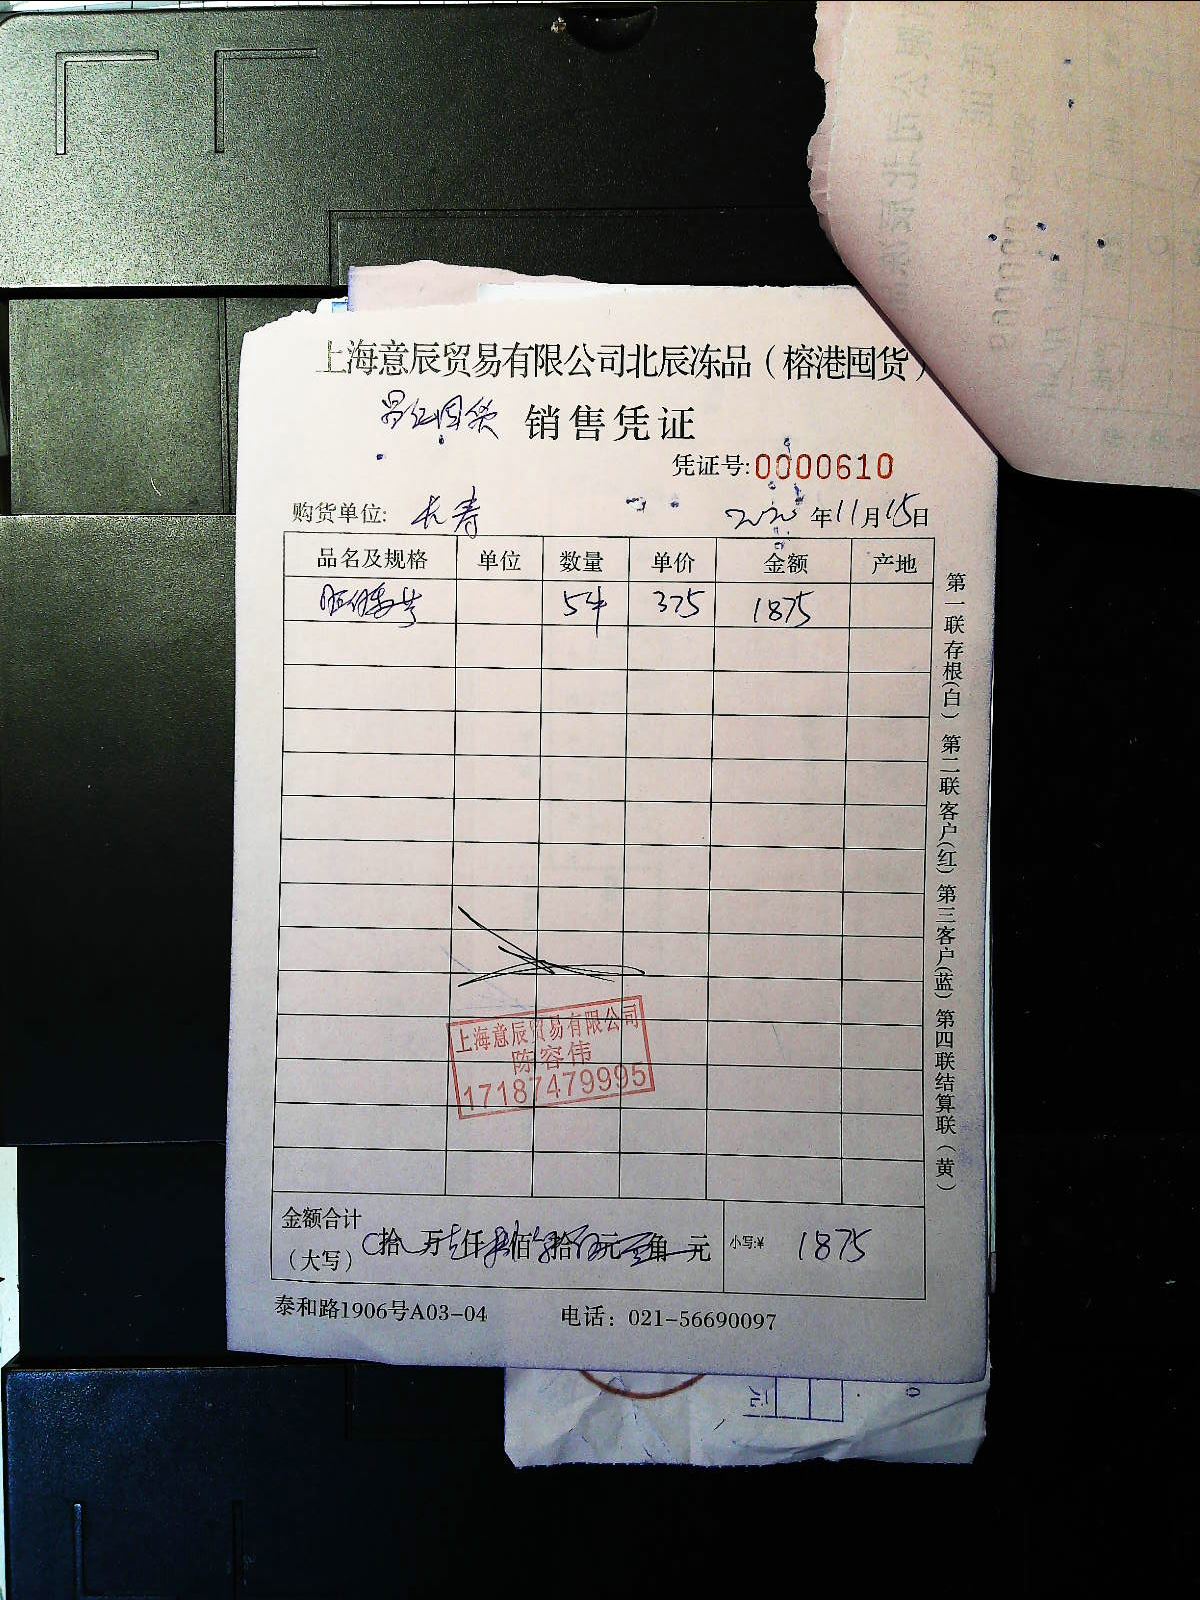 上海意辰贸易有限公司北辰冻品（榕港囤货）
销售凭证
凭证号:0000610
购货单位: 长寿
2020年11月15日
品名及规格 单位 数量 单价 金额 产地
5件 375 1875
上海意辰贸易有限公司
陈容伟
17187479995
金额合计
（大写） 拾 万 仟 佰 拾 元 角 元 小写:¥ 1875
泰和路1906号A03-04 电话：021-56690097
第一联存根(白) 第二联客户(红) 第三客户(蓝) 第四联结算联（黄）